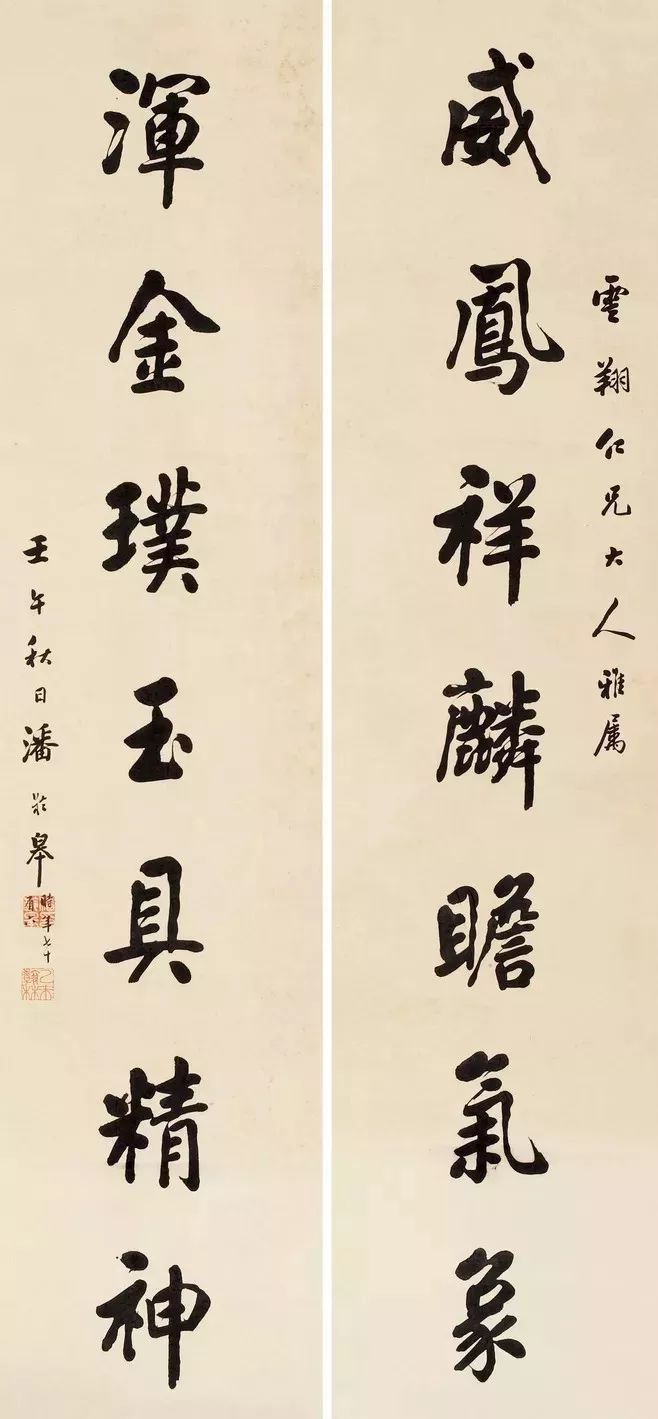 雲翔仁兄大人雅属
威鳳祥麟瞻氣象
渾金璞玉具精神
壬午秋日潘齡皋
時年七十有六